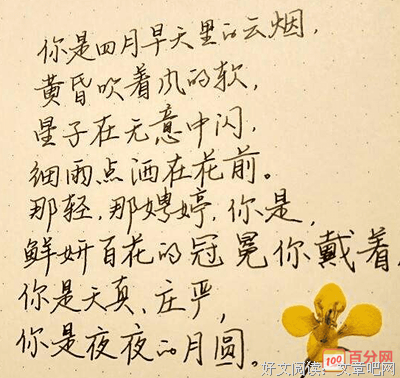 你是四月早天里的云烟，
黄昏吹着风的软，
星子在无意中闪，
细雨点洒在花前。
那轻，那娉婷，你是，
鲜妍百花的冠冕你戴着，
你是天真、庄严，
你是夜夜的月圆。
100百分网
好文阅读，文章吧网